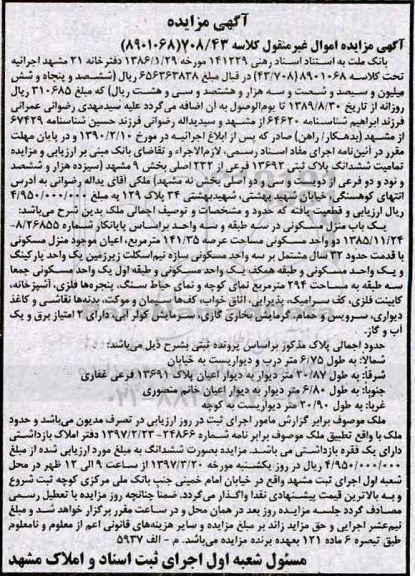 آگهی مزایده
آگهی مزایده اموال غیرمنقول کلاسه ۷۰۸/۴۳(۸۹۰۱۰۶۸)
بانک ملت به استناد اسناد رهنی ۱۴۱۲۲۹ مورخه ۱۳۸۶/۱/۲۹ دفترخانه ۲۱ مشهد اجرائیه
تحت کلاسه ۸۹۰۱۰۶۸ (۴۳/۷۰۸) در قبال مبلغ ۶۵۶۳۶۳۸۳۸ ریال (ششصد و پنجاه و شش
میلیون و سیصد و شصت و سه هزار و هشتصد و سی و هشت ریال) که مبلغ ۳۱۰۶۸۵ ریال
روزانه از تاریخ ۱۳۸۹/۸/۳۰ تا یوم‌الوصول به آن اضافه می‌گردد علیه سیدمهدی رضوانی عمرانی
فرزند ابراهیم شناسنامه ۶۴۶۲۰ از مشهد و سیدیداله رضوانی فرزند حسین شناسنامه ۶۷۴۲۹
از مشهد (بدهکار/ راهن) صادر که پس از ابلاغ اجرائیه در مورخ ۱۳۹۰/۲/۱۰ و در پایان مهلت
مقرر در آئین‌نامه اجرای مفاد اسناد رسمی، لازم‌الاجراء و تقاضای بانک مبنی بر ارزیابی و مزایده
تمامیت ششدانگ پلاک ثبتی ۱۳۶۹۲ فرعی از ۲۳۲ اصلی بخش ۹ مشهد (سیزده هزار و ششصد
و نود و دو فرعی از دویست و سی و دو اصلی بخش نه مشهد) ملکی آقای یداله رضوانی به آدرس
انتهای کوهسنگی، خیابان شهید بهشتی، شهیدبهشتی ۳۴ پلاک ۱۲۹ به مبلغ ۴/۹۵۰/۰۰۰/۰۰۰
ریال ارزیابی و قطعیت یافته که حدود و مشخصات و توصیف اجمالی ملک بدین شرح می‌باشد:
یک باب منزل مسکونی در سه طبقه و سه واحد براساس پایانکار شماره ۸/۲۶۸۵۵-
۱۳۸۵/۱۱/۲۴ دو واحد مسکونی مساحت عرصه ۱۴۱/۳۵ مترمربع، اعیان موجود منزل مسکونی
با قدمت حدود ۳۲ سال مشتمل بر سه واحد مسکونی سازه نیم‌اسکلت زیرزمین یک واحد پارکینگ
و یک واحد مسکونی و طبقه همکف یک واحد مسکونی و طبقه اول یک واحد مسکونی جمعا
سه طبقه به مساحت ۲۹۴ مترمربع نمای کوچه و نمای حیاط سنگ، پنجره‌ها فلزی، آشپزخانه،
کابینت فلزی، کف سرامیک، پذیرایی، اتاق خواب، کف‌ها سیمان و موکت، بدنه‌ها نقاشی و کاغذ
دیواری، سرویس و حمام، گرمایش بخاری گازی، سرمایش کولر آبی، دارای ۲ امتیاز برق و یک
آب و گاز.
حدود اجمالی پلاک مذکور براساس پرونده ثبتی بشرح ذیل می‌باشد:
شمالا: به طول ۶/۷۵ متر درب و دیواریست به خیابان
شرقا: به طول ۲۰/۸۷ متر دیوار به دیوار اعیان پلاک ۱۳۶۹۱ فرعی غفاری
جنوبا: به طول ۶/۸۰ متر دیوار به دیوار اعیان خانم منصوری
غربا: به طول ۲۰/۹۰ متر دیواریست به کوچه
ملک موصوف برابر گزارش مامور اجرای ثبت در روز ارزیابی در تصرف مدیون می‌باشد و حدود
ملک با واقع تطبیق ملک موصوف برابر نامه شماره ۲۴۸۶۶-۱۳۹۷/۲/۲۳ دفتر املاک بازداشتی
دارای یک فقره بازداشتی می باشد. مزایده بصورت ششدانگ به مبلغ مورد ارزیابی شده از مبلغ
۴/۹۵۰/۰۰۰/۰۰۰ ریال در روز یکشنبه مورخه ۱۳۹۷/۳/۲۰ از ساعت ۹ الی ۱۲ ظهر در محل
شعبه اول اجرای ثبت مشهد واقع در خیابان امام خمینی جنب بانک ملی مرکزی کوچه ثبت شروع
و به بالاترین قیمت پیشنهادی نقدا واگذار می‌گردد. ضمنا چنانچه روز مزایده با تعطیل رسمی
مصادف گردد جلسه مزایده روز بعد در همان محل و در ساعت مقرر برگزار خواهد شد و مبلغ
نیم‌عشر اجرایی و حق مزاید زاند بر مبلغ مزایده و سایر هزینه‌های قانونی اعم از معلوم و نامعلوم
طبق تبصره ۶ ماده ۱۲۱ بعهده برنده مزایده می‌باشد. م - الف ۵۹۳۷
مسئول شعبه اول اجرای ثبت اسناد و املاک مشهد